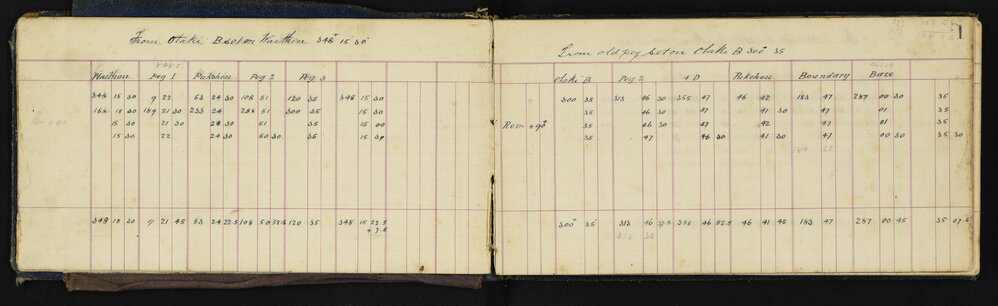 From Otaki B set on Waithou 348° 15' 30"
Waithou Peg 1 Pukehou Peg 2 Peg 3
348 15 30 9 22 53 24 30 108 51 120 35 348 15 30
168 15 30 189 21 30 233 24 288 51 300 35 15 30
15 30 21 30 24 30 51 35 15 00
15 30 22 24 30 50 30 35 15 30
348 15 30 9 21 45 53 24 22.5 108 50 52.5 120 35 348 15 22.5
+ 7.5
1
From old peg set on Otaki B 300° 35
Otaki B Peg 2 4 D Pukehou Boundary Base
300 35 313 46 30 355 47 46 42 183 47 287 00 30 35
35 46 30 47 41 30 47 01 35
Rev. + 90° 35 46 30 47 42 47 01 35
35 47 46 30 41 30 47 00 30 35 30
164 25
300° 35' 313 46 37.5 355 46 52.5 46 41 45 183 47 287 00 45 35 07.5